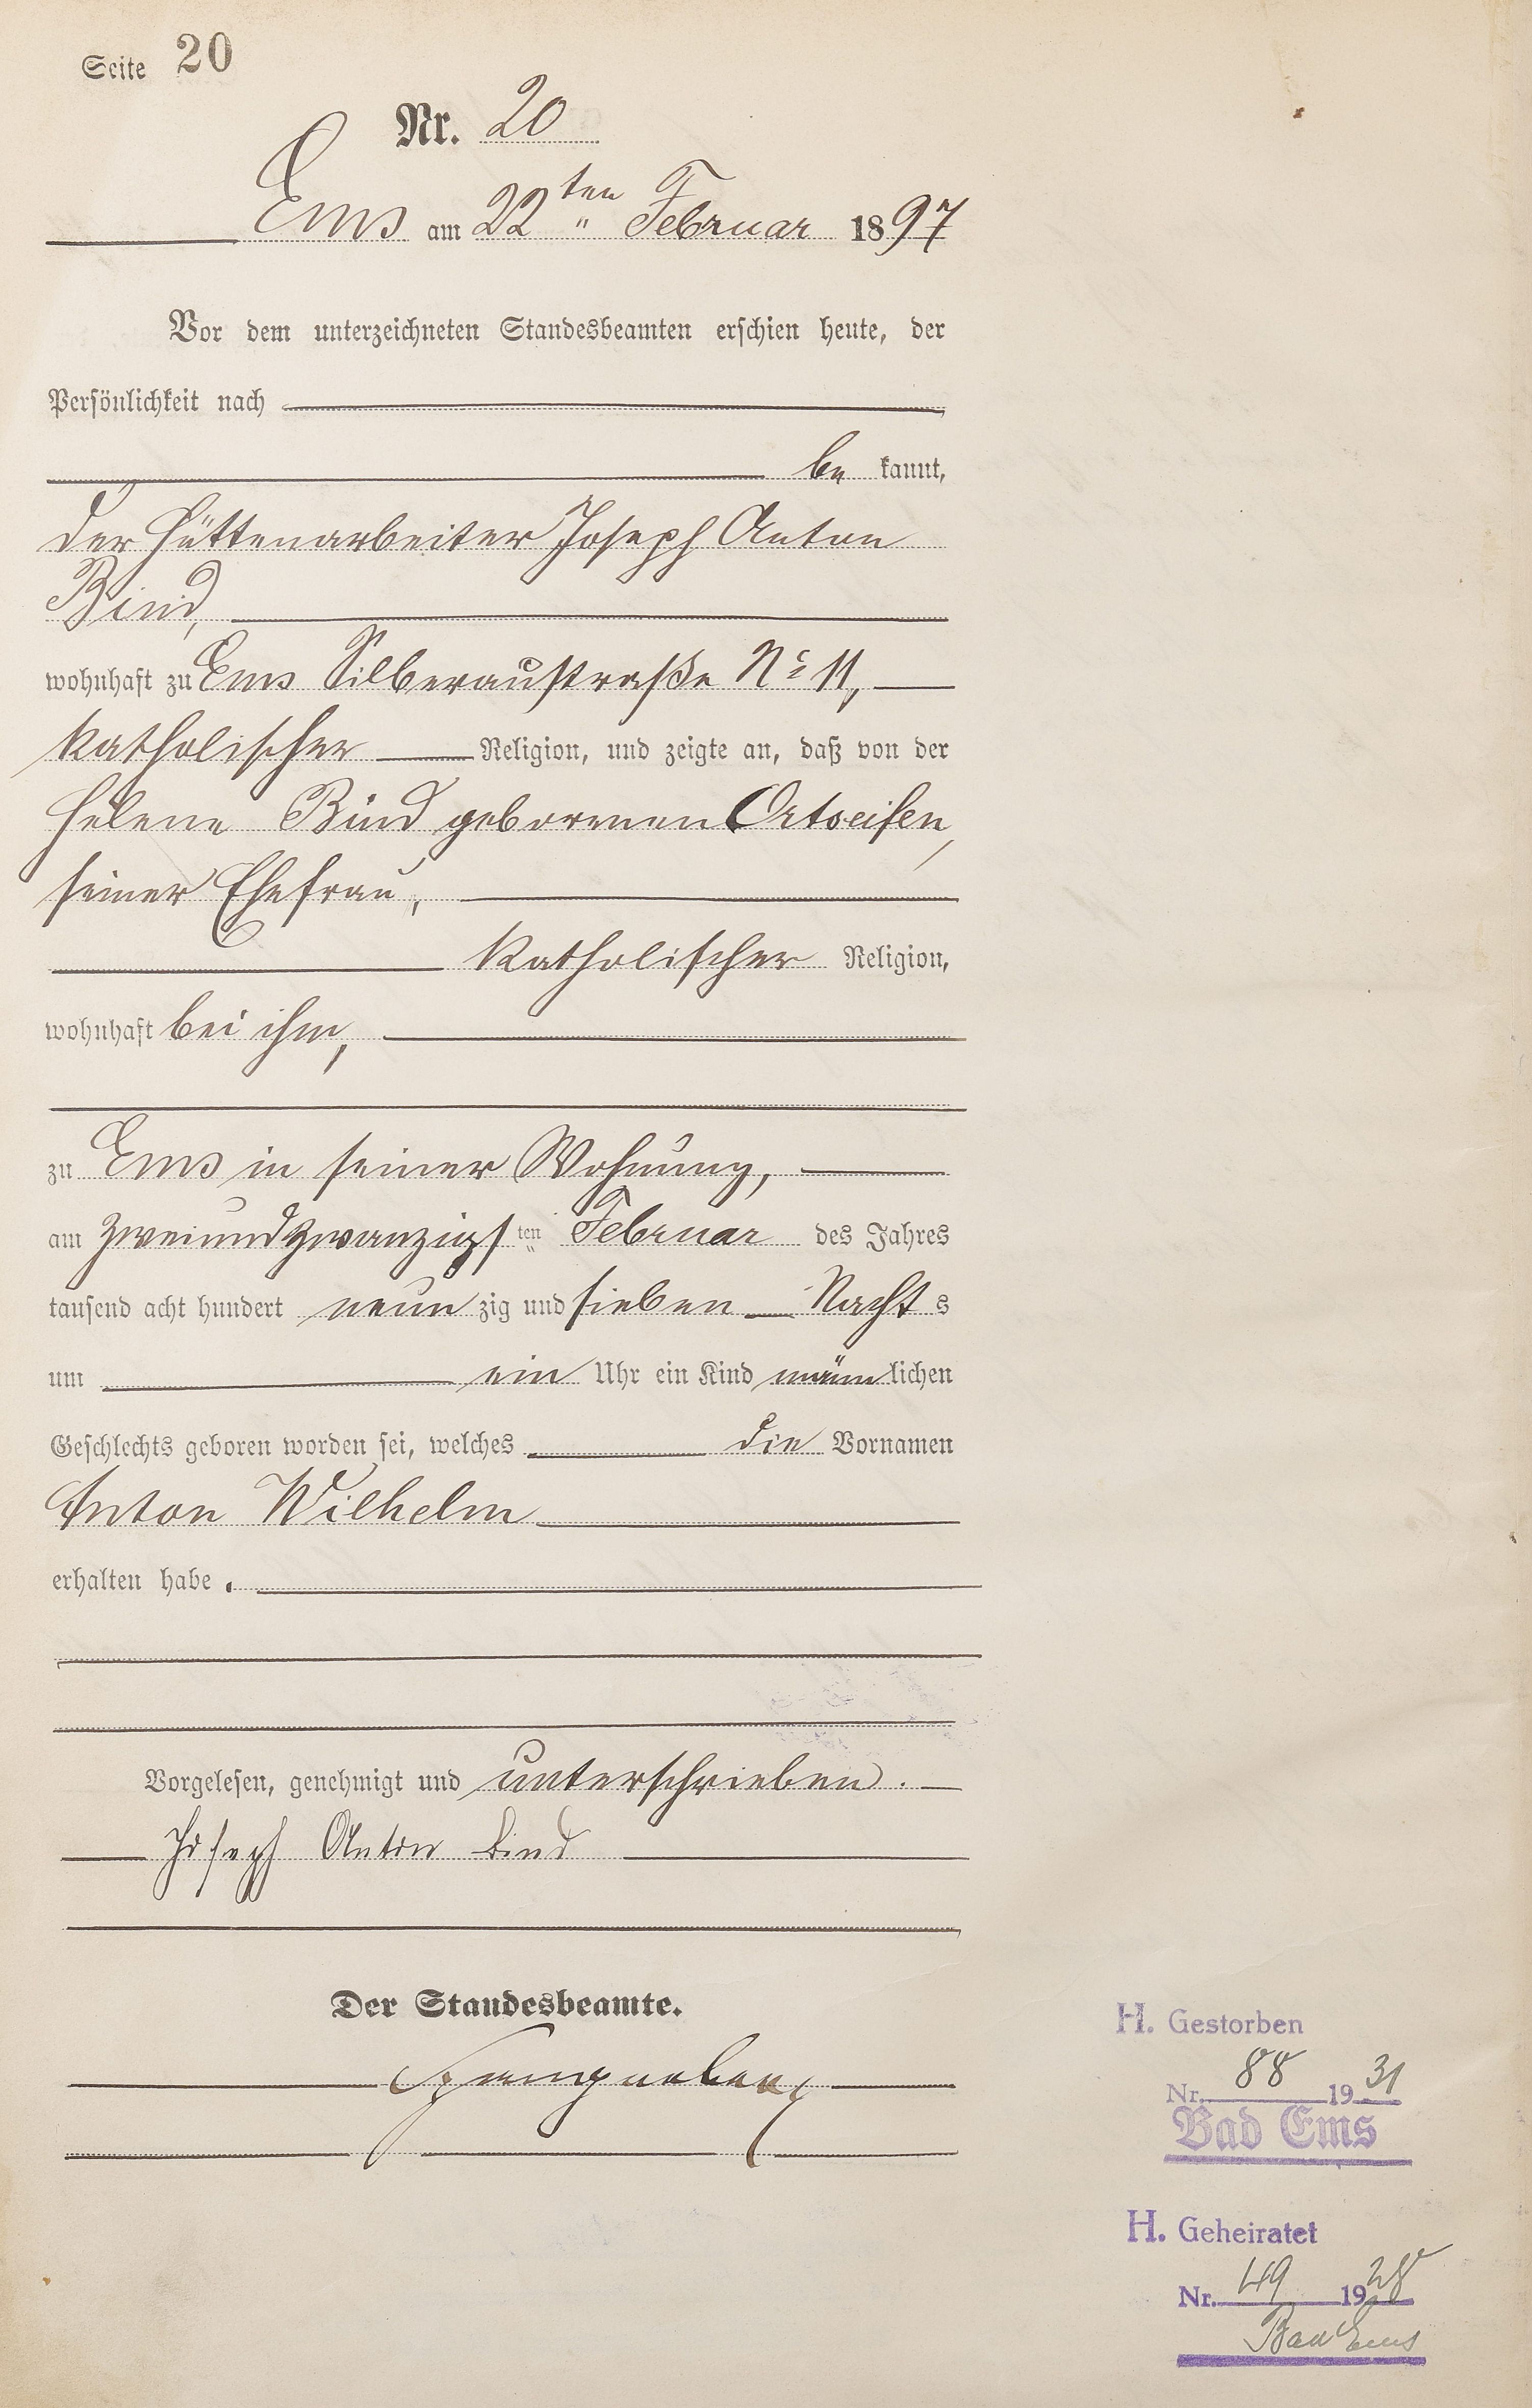 Seite 20
Nr. 20
Ems am 22ten Februar 1897
Vor dem unterzeichneten Standesbeamten erschien heute, der
Persönlichkeit nach
be kannt,
der Hüttenarbeiter Joseph Anton
Bind,
wohnhaft zu Ems Silberaustraße No 11,
katholischer Religion, und zeigte an, daß von der
Helene Bind geborenen Ortseifen,
seiner Ehefrau,
katholischer Religion,
wohnhaft bei ihm,
zu Ems in seiner Wohnung,
am zweiundzwanzigsten Februar des Jahres
tausend acht hundert neunzig und sieben Nachts
um ein Uhr ein Kind männlichen
Geschlechts geboren worden sei, welches die Vornamen
Anton Wilhelm
erhalten habe.
Vorgelesen, genehmigt und unterschrieben.
Joseph Anton Bind
Der Standesbeamte.
H. Gestorben
Nr. 88 1931
Bad Ems
H. Geheiratet
Nr. 49 1928
Bad Ems